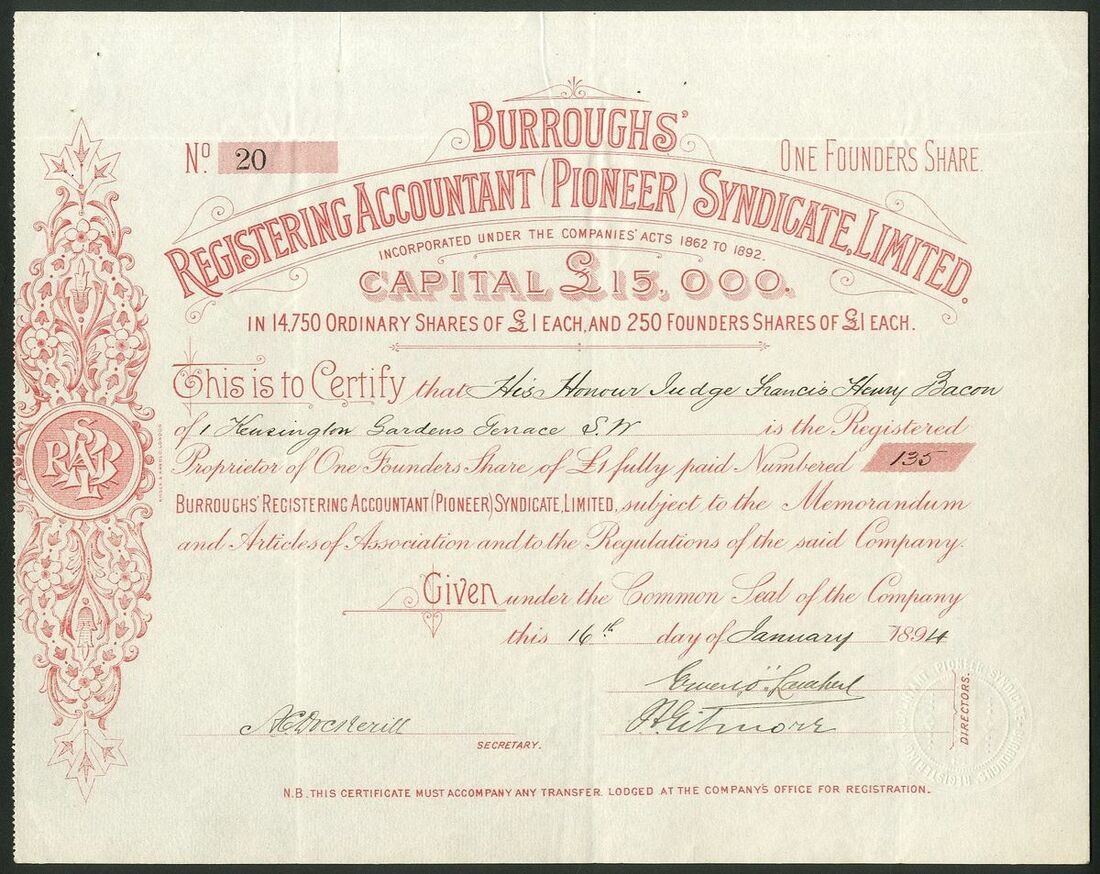 BURROUGHS'
No. 20
ONE FOUNDERS SHARE.
REGISTERING ACCOUNTANT (PIONEER) SYNDICATE, LIMITED.
INCORPORATED UNDER THE COMPANIES' ACTS 1862 TO 1892.
CAPITAL £15,000.
IN 14,750 ORDINARY SHARES OF £1 EACH, AND 250 FOUNDERS SHARES OF £1 EACH.
This is to Certify that His Honour Judge Francis Henry Bacon
of 1 Kensington Gardens Terrace S.W is the Registered
Proprietor of One Founders Share of £1 fully paid Numbered 135
BURROUGHS' REGISTERING ACCOUNTANT (PIONEER) SYNDICATE, LIMITED, subject to the Memorandum
and Articles of Association and to the Regulations of the said Company.
Given under the Common Seal of the Company
this 16th day of January 1894
DIRECTORS.
A C Dockerill
SECRETARY.
N.B. THIS CERTIFICATE MUST ACCOMPANY ANY TRANSFER LODGED AT THE COMPANY'S OFFICE FOR REGISTRATION.